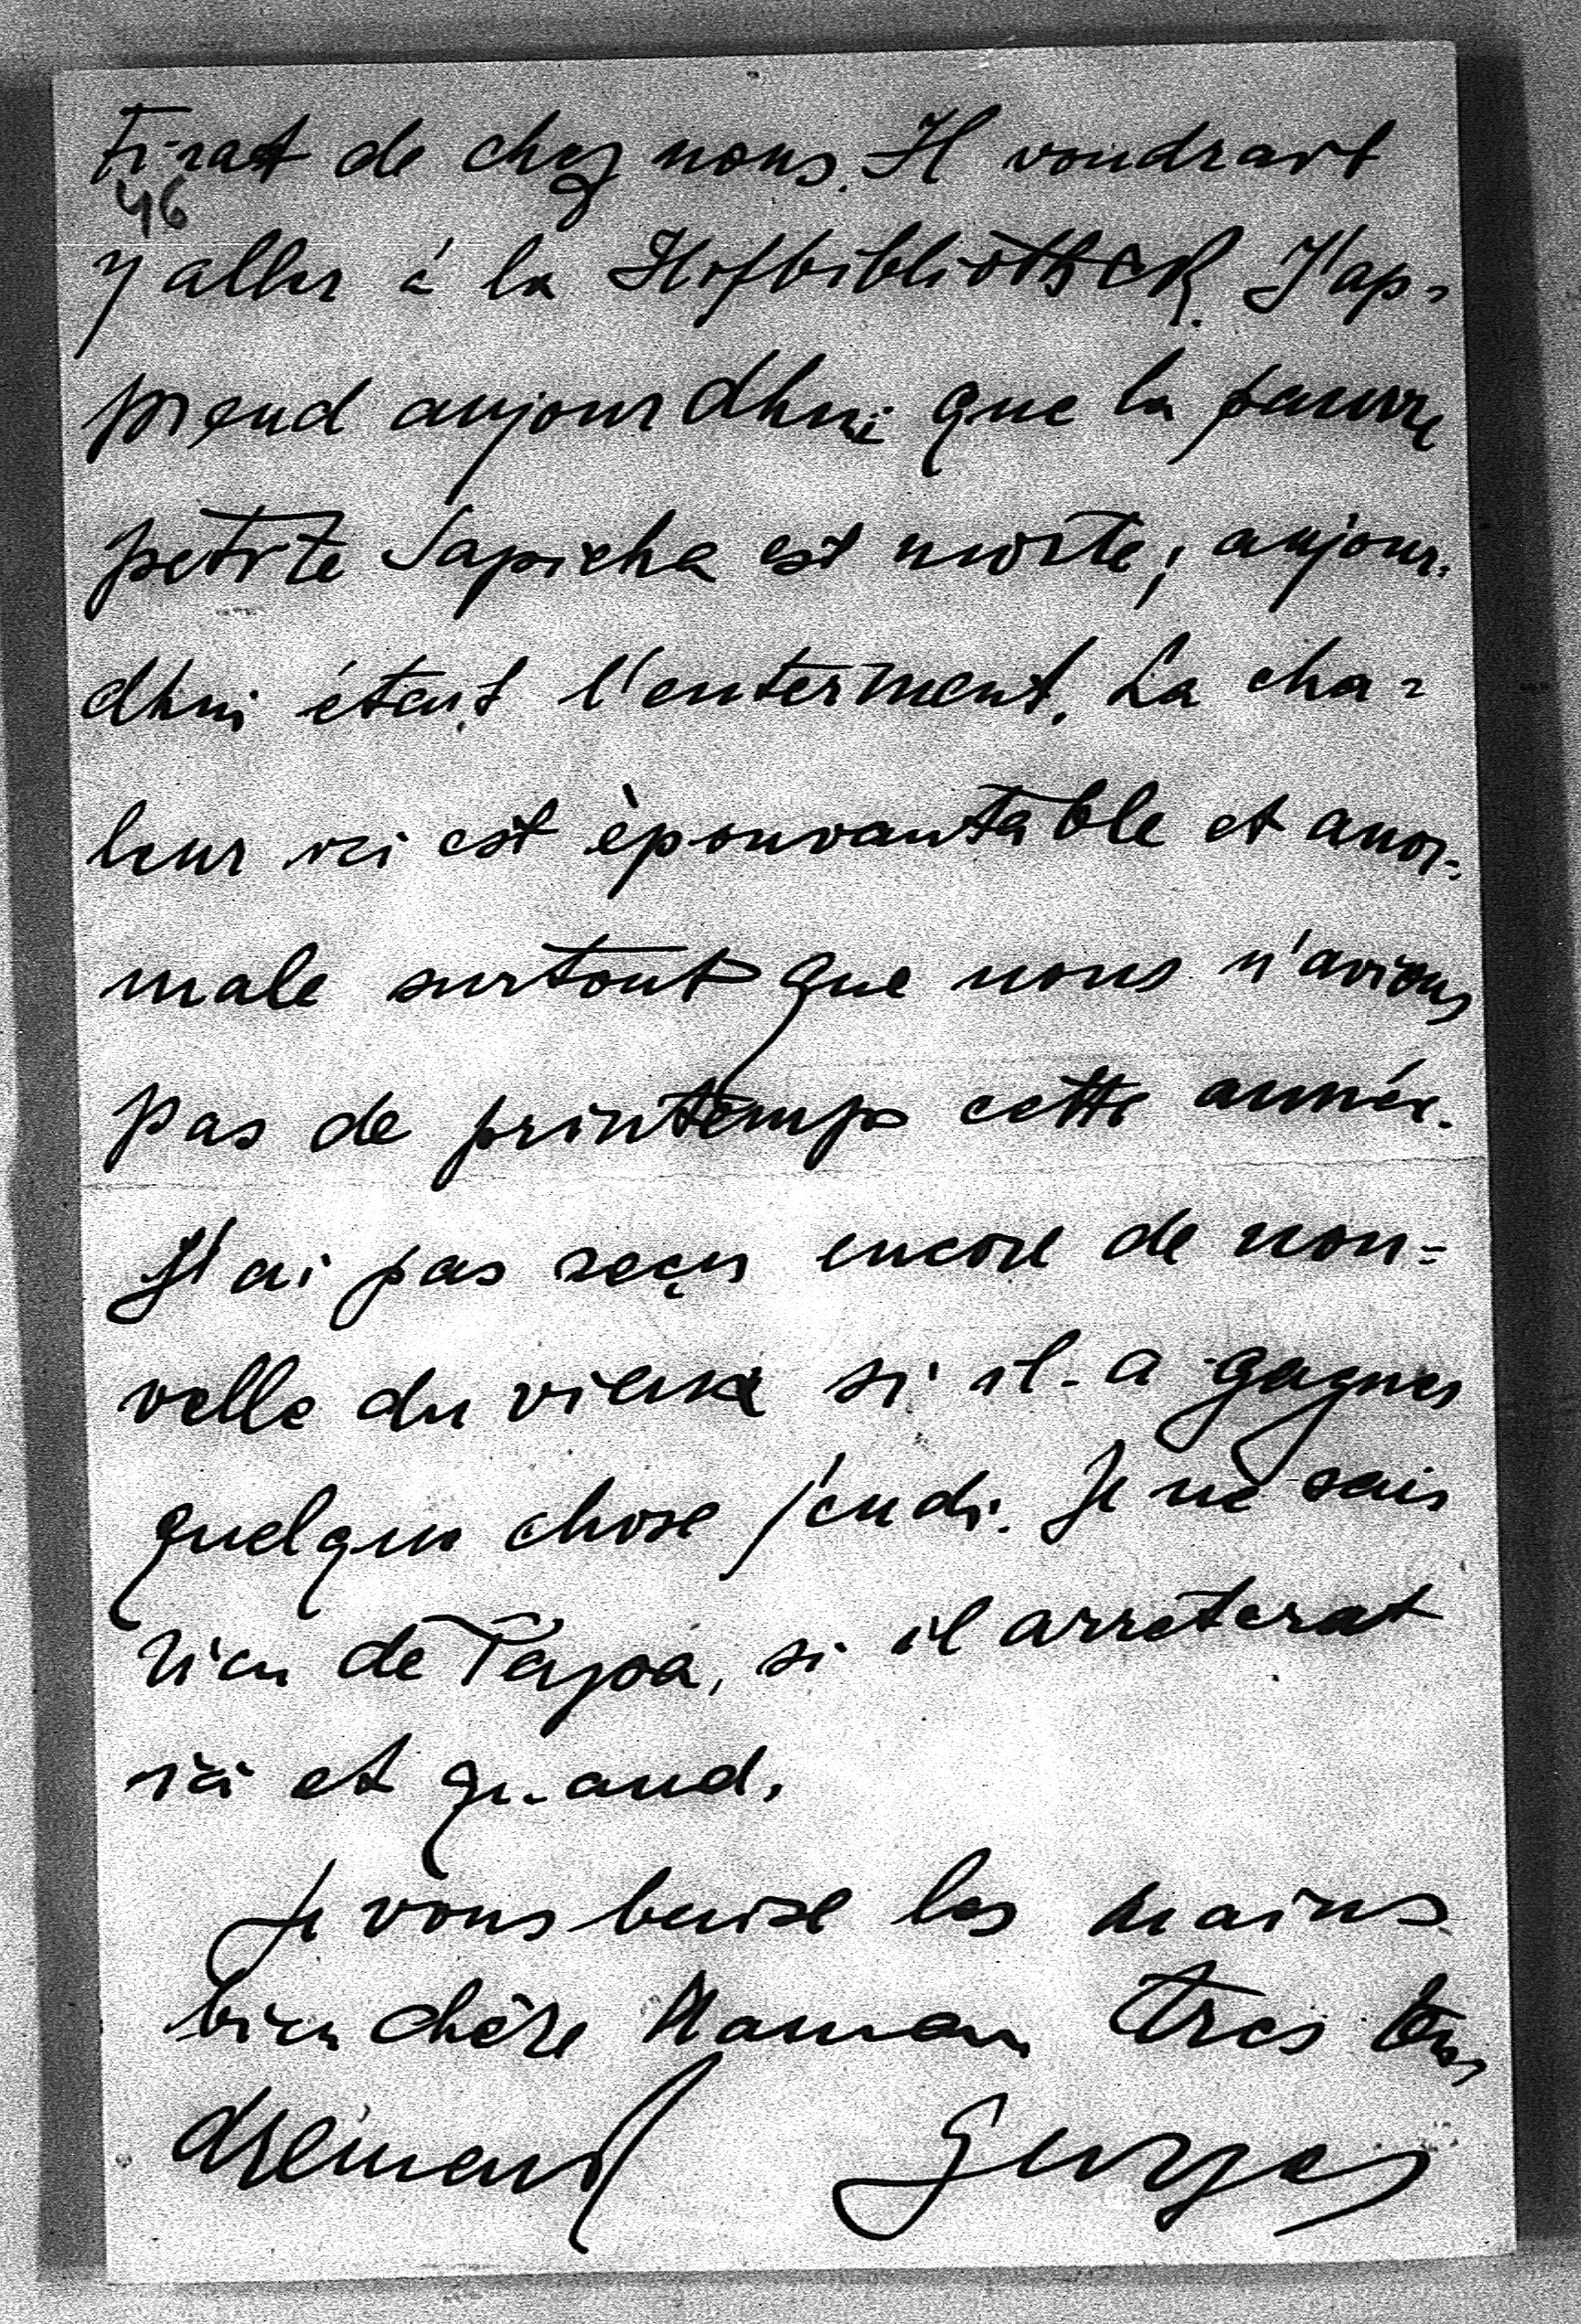 tirat de chez nous. Il voudrart
46
y aller à la Hofbibliothek. J'ap-
prend aujourdhui que la pauvre
petite Sapieha est morte, aujour-
dhui étant l'enterment. La cha-
leur ici est èpouvantable et anor-
male surtout que nous n'avions
pas de printemps cette année.
J'ai pas reçu encore de nou-
velle du vieux si il a gagner
quelque chose jeudi. Je ne sais
rien de , si il arreterat
ici et quand.
Je vous baise les mains
bien chère Maman tres ten
drement Georges